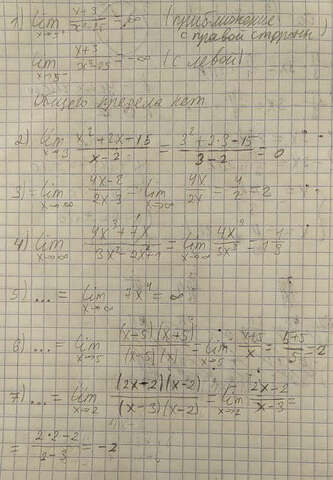 1) lim x+3 / x²-25 = ∞ (приближение
с правой стороны)
lim x+3 / x²-25 = -∞ (с левой)
Общего предела нет
2) lim x→3 x²+2x-15 / x-2 = 3²+2·3-15 / 3-2 = 0
3) = lim x→∞ 4x-2 / 2x-3 = lim x→∞ 4x / 2x = 4 / 2 = 2
4) lim x→∞ 4x³+7x / 3x³-2x²+1 = lim x→∞ 4x³ / 3x³ = 1 1/3
5) ... = lim x→∞ 7x⁴ = ∞
6) ... = lim x→5 (x-5)(x+5) / (x-5)(x) = lim x→5 x+5 / x = 5+5 / 5 = 2
7) ... = lim x→2 (2x-2)(x-2) / (x-3)(x-2) = lim x→2 2x-2 / x-3 =
= 2·2-2 / 2-3 = -2